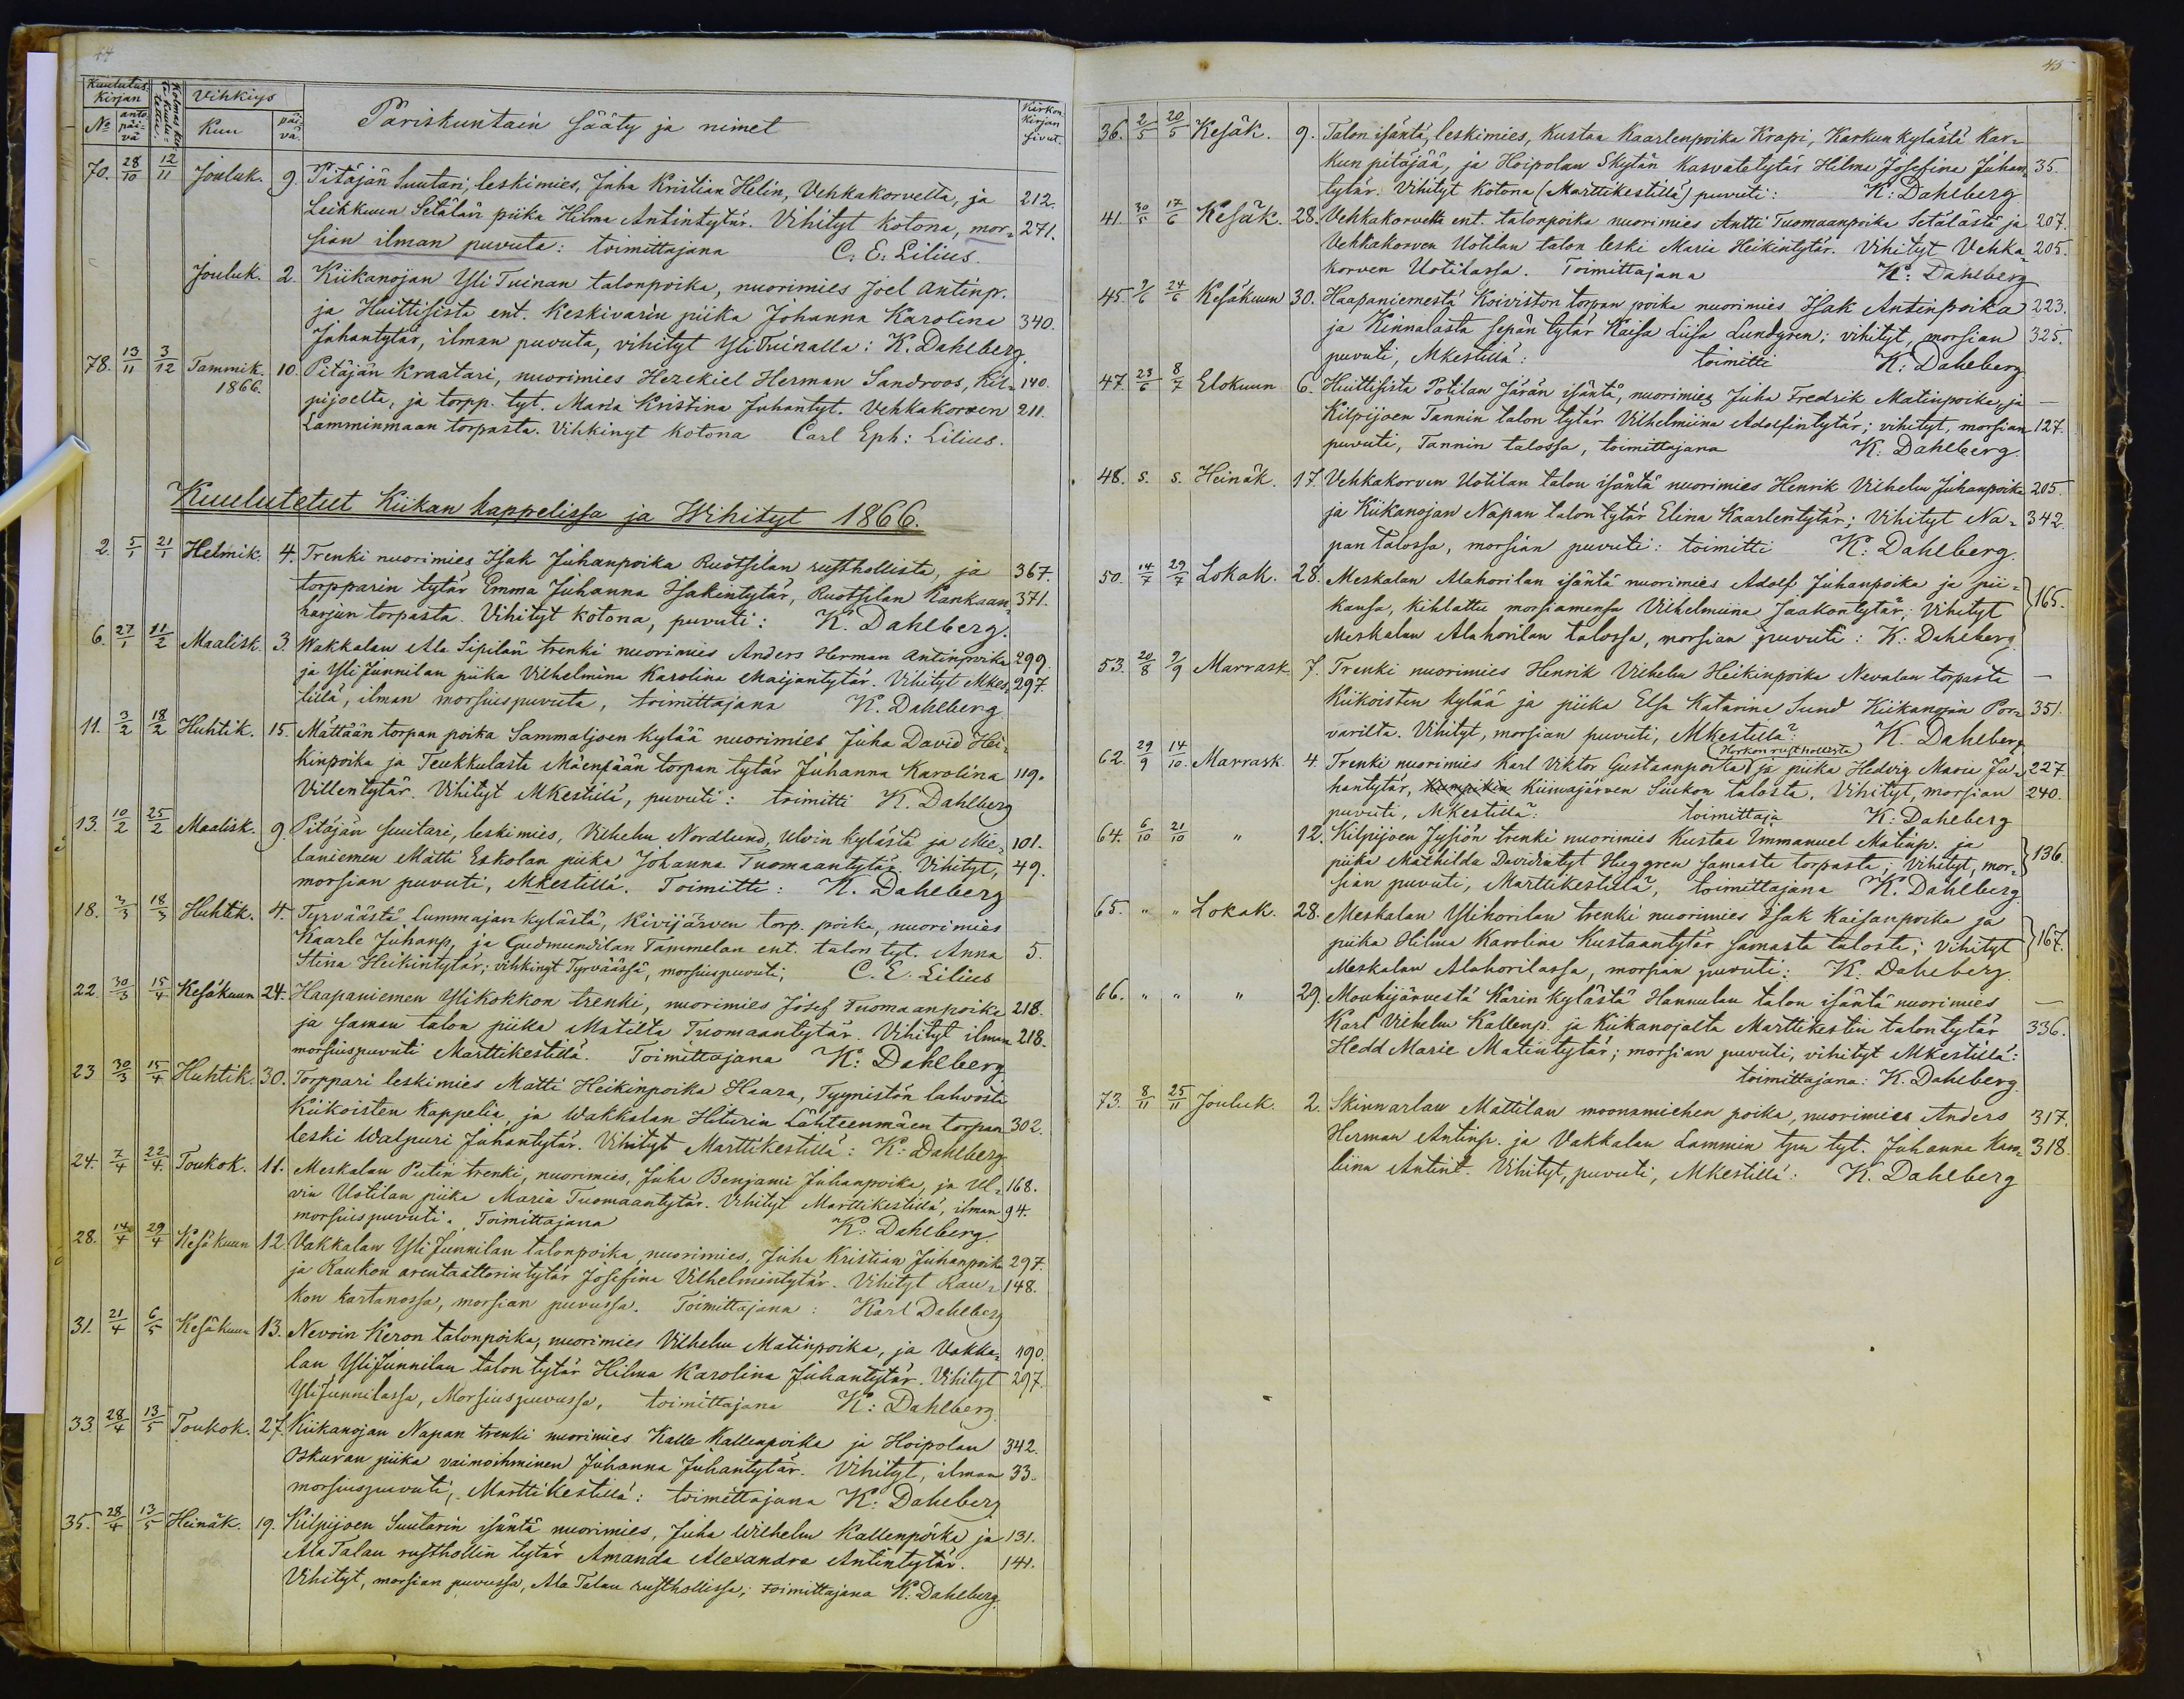 44
Kuulutus Kirjan
Vihkiys
Pariskuntain sääty ja nimet
Kirkon Kirjan sivut.
No anto päivä Kuu päivä.
70. 28/10 12/11 Jouluk. 9. Pitäjän Suutari, leskimies, Juha Kristian Helin, Vehkakorvelta, ja 212.
Leikkuun Setälän piika Hilma Antintytär. Vihityt kotona, mor= 271.
sian ilman puvuta: toimittajana C. E. Lilius.
Jouluk. 2. Kiikanojan Yli Tuinan talonpoika, nuorimies Joel Antinp.
ja Huittisista ent. Keskivarin piika Johanna Karolina 340.
Juhantytär, ilman puvuta, vihityt Yli Tuinalla: K. Dahlberg.
78. 13/11 3/12 Tammik. 10. Pitäjän Kraatari, nuorimies Hezekiel Herman Sandroos, Kil= 140.
1866. pijoelta, ja torpp. tyt. Maria Kristina Juhantyt. Vehkakorven 211.
Lamminmaan torpasta. Vihkinyt kotona Carl Eph: Lilius.
Kuulutetut Kiikan kappelissa ja Wihityt 1866.
2. 5/1 21/1 Helmik. 4. Trenki nuorimies Isak Juhanpoika Ruotsilan rusthollista, ja 367.
torpparin tytär Emma Juhanna Isakintytär, Ruotsilan Kankaan 371.
harjun torpasta. Vihityt kotona, puvuti: K. Dahlberg.
6. 27/1 11/2 Maalisk. 3. Wakkalan Ala Sipilän trenki nuorimies Anders Herman Antinpoika 299.
ja Yli Junnilan piika Vilhelmina Karolina Maijantytär. Vihityt Mkes= 297.
tillä, ilman morsiuspuvuta, toimittajana K. Dahlberg
11. 3/2 18/2 Huhtik. 15. Mättään torpan poika Sammaljoen kylää nuorimies Juha David Hei=
kinpoika ja Teukkulasta Mäenpään torpan tytär Juhanna Karolina 119.
Villentytär. Vihityt MKestillä, puvuti: toimitti K. Dahlberg
13. 10/2 25/2 Maalisk. 9. Pitäjän suutari, leskimies, Vilhelm Nordlund, Ulvin kylästä ja Mie= 101.
laniemen Matti Eskolan piika Johanna Tuomaantytär. Vihityt, 49.
morsian puvuti, Mkestillä. Toimitti: K. Dahlberg
18. 3/3 18/3 Huhtik. 4. Tyrväästä Lummajan kylästä, Kivijärven torp. poika, nuorimies
Kaarle Juhanp, ja Gudmundilan Tammelan ent. talon tyt. Anna 5.
Stina Heikintytär; vihkinyt Tyrväässä, morsiuspuvuti; C. E. Lilius
22. 30/3 15/4 Kesäkuun 24. Haapaniemen Ylikokkon trenki, nuorimies Josef Tuomaanpoika 218.
ja saman talon piika Matilta Tuomaantytär. Vihityt ilman 218.
morsiuspuvuti Marttikestillä. Toimittajana K: Dahlberg
23 30/3 15/4 Huhtik. 30. Torppari leskimies Matti Heikinpoika Haara, Tyynistön lahvosta
Kiikoisten kappelia, ja Wakkalan Hiturin Lähteenmäen torpan 302.
leski Walpuri Juhantytär. Vihityt Marttikestillä: K: Dahlberg
24. 7/4 22/4 Toukok. 11. Meskalan Putin trenki, nuorimies, Juha Benjami Juhanpoika, ja Ul= 168.
vin Uotilan piika Maria Tuomaantytär. Vihityt Marttikestillä, ilman 94.
morsiuspuvuti. Toimittajana K: Dahlberg.
28. 14/4 29/4 Kesäkuun 12. Vakkalan Yli Junnilan talonpoika, nuorimies, Juha Kristian Juhanpoika 297.
ja Raukon arentaattorin tytär Josefina Vilhelmintytär. Vihityt Rau= 148.
kon kartanossa, morsian puvussa. Toimittajana: Karl Dahlberg
31. 21/4 6/5 Kesäkuun 13. Nevoin Keron talonpoika, nuorimies Vilhelm Matinpoika, ja Vakka= 190.
lan Yli Junnilan talon tytär Hilma Karolina Juhantytär. Vihityt 297.
Yli Junnilassa, Morsiuspuvussa, toimittajana K: Dahlberg.
33. 28/4 13/5 Toukok. 27. Kiikanojan Napan trenki nuorimies Kalle Kallenpoika ja Hoipolan 342.
Oskuran piika vaimoihminen Juhanna Juhantytär. Vihityt, ilman 33.
morsiuspuvuti, Marttikestillä: toimittajana K: Dahlberg
35. 28/4 13/5 Heinäk. 19. Kilpijoen Suutarin isäntä nuorimies, Juha Wilhelm Kallenpoika ja 131.
Ala Talan rusthollin tytär Amanda Alexandra Antintytär. 141.
Vihityt, morsian puvussa, Ala Talan rusthollissa; toimittajana K. Dahlberg.
45
36. 2/5 20/5 Kesäk. 9. Talon isäntä, leskimies, Kustaa Kaarlenpoika Krapi, Karkun kylästä Kar=
kun pitäjää, ja Hoipolan Skytän kasvatetytär Hilma Josefina Juhan 35.
tytär. Vihityt kotona (Marttikestillä) puvuti: K: Dahlberg
41. 30/5 17/6 Kesäk. 28. Vehkakorvelta ent. talonpoika nuorimies Antti Tuomaanpoika Setälästä ja 207.
Vehkakorven Uotilan talon leski Maria Heikintytär. Vihityt Vehka= 205.
korven Uotilassa. Toimittajana K: Dahlberg
45. 9/6 24/6 Kesäkuun 30. Haapaniemestä Koiviston torpan poika nuorimies Isak Antinpoika 223.
ja Kinnalasta sepän tytär Kaisa Liisa Lundgren; vihityt, morsian 325.
puvuti, Mkestillä: toimitti K: Dahlberg
47. 23/6 8/7 Elokuun 6. Huittisista Potilan Järän isäntä, nuorimies Juha Fredrik Matinpoika, ja —
Kilpijoen Tannin talon tytär Vilhelmiina Adolfintytär; vihityt, morsian 127.
puvuti, Tannin talossa, toimittajana K: Dahlberg.
48. s. s. Heinäk. 17. Vehkakorven Uotilan talon isäntä nuorimies Henrik Vilhelm Juhanpoika 205.
ja Kiikanojan Napan talon tytär Elina Kaarlentytär; Vihityt Na= 342.
pan talossa, morsian puvuti: toimitti K: Dahlberg.
50. 14/7 29/7 Lokak. 28. Meskalan Alahorilan isäntä nuorimies Adolf Juhanpoika ja pii=
kansa, kihlattu morsiamensa Vilhelmiina Jaakontytär; Vihityt 165.
Meskalan Alahorilan talossa, morsian puvuti: K: Dahlberg
53. 20/8 9/9 Marrask. 7. Trenki nuorimies Henrik Vilhelm Heikinpoika Nevalan torpasta —
Kiikoisten kylää ja piika Elsa Katarina Sund Kiikanojan Por= 351.
varilta. Vihityt, morsian puvuti, Mkestillä: K. Dahlberg
62. 29/9 14/10. Marrask. 4 Trenki nuorimies Karl Viktor Gustaanpoika (Horkon rusthollista) ja piika Hedvig Maria Ju= 227.
hantytär, Kiimajärven Siukon talosta. Vihityt, morsian 240.
puvuti, Mkestillä: toimittaja K: Dahlberg
64. 6/10 21/10 " 12. Kilpijoen Jyfiön trenki nuorimies Kustaa Immanuel Matinp. ja
piika Mathilda Davidintyt Heggren samasta torpasta; Vihityt, mor= 136.
sian puvuti, Marttikestillä, toimittajana K. Dahlberg.
65. " " Lokak. 28. Meskalan Ylihorilan trenki nuorimies Isak Kaisanpoika ja
piika Hilma Karolina Kustaantytär samasta talosta; Vihityt 167.
Meskalan Alahorilassa, morsian puvuti: K. Dahlberg.
66. " " " 29. Mouhijärvestä Karin kylästä Hannulan talon isäntä nuorimies —
Karl Vilhelm Kallenp. ja Kiikanojalta Marttikestin talon tytär 336.
Hedd Marie Matintytär; morsian puvuti, vihityt Mkestillä:
toimittajana: K. Dahlberg.
73. 8/11 25/11 Jouluk. 2. Skinnarlan Mattilan moonamiehen poika, nuorimies Anders 317.
Herman Antinp. ja Vakkalan Lammin tpn tyt. Juhanna Karo= 318.
liina Antint. Vihityt, puvuti, Mkestillä: K. Dahlberg